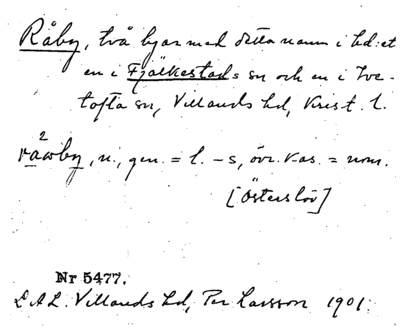 Råby, två byar med detta namn i hd: et
en i Fjälkestads sn och en i Ive-
tofta sn, Villands hd, Krist. l.
2
råwby, n., gen. = l. -s, övr. kas. = nom.
[Österslöv]
Nr 5477.
L A L. Villands hd, Per Larsson 1901.